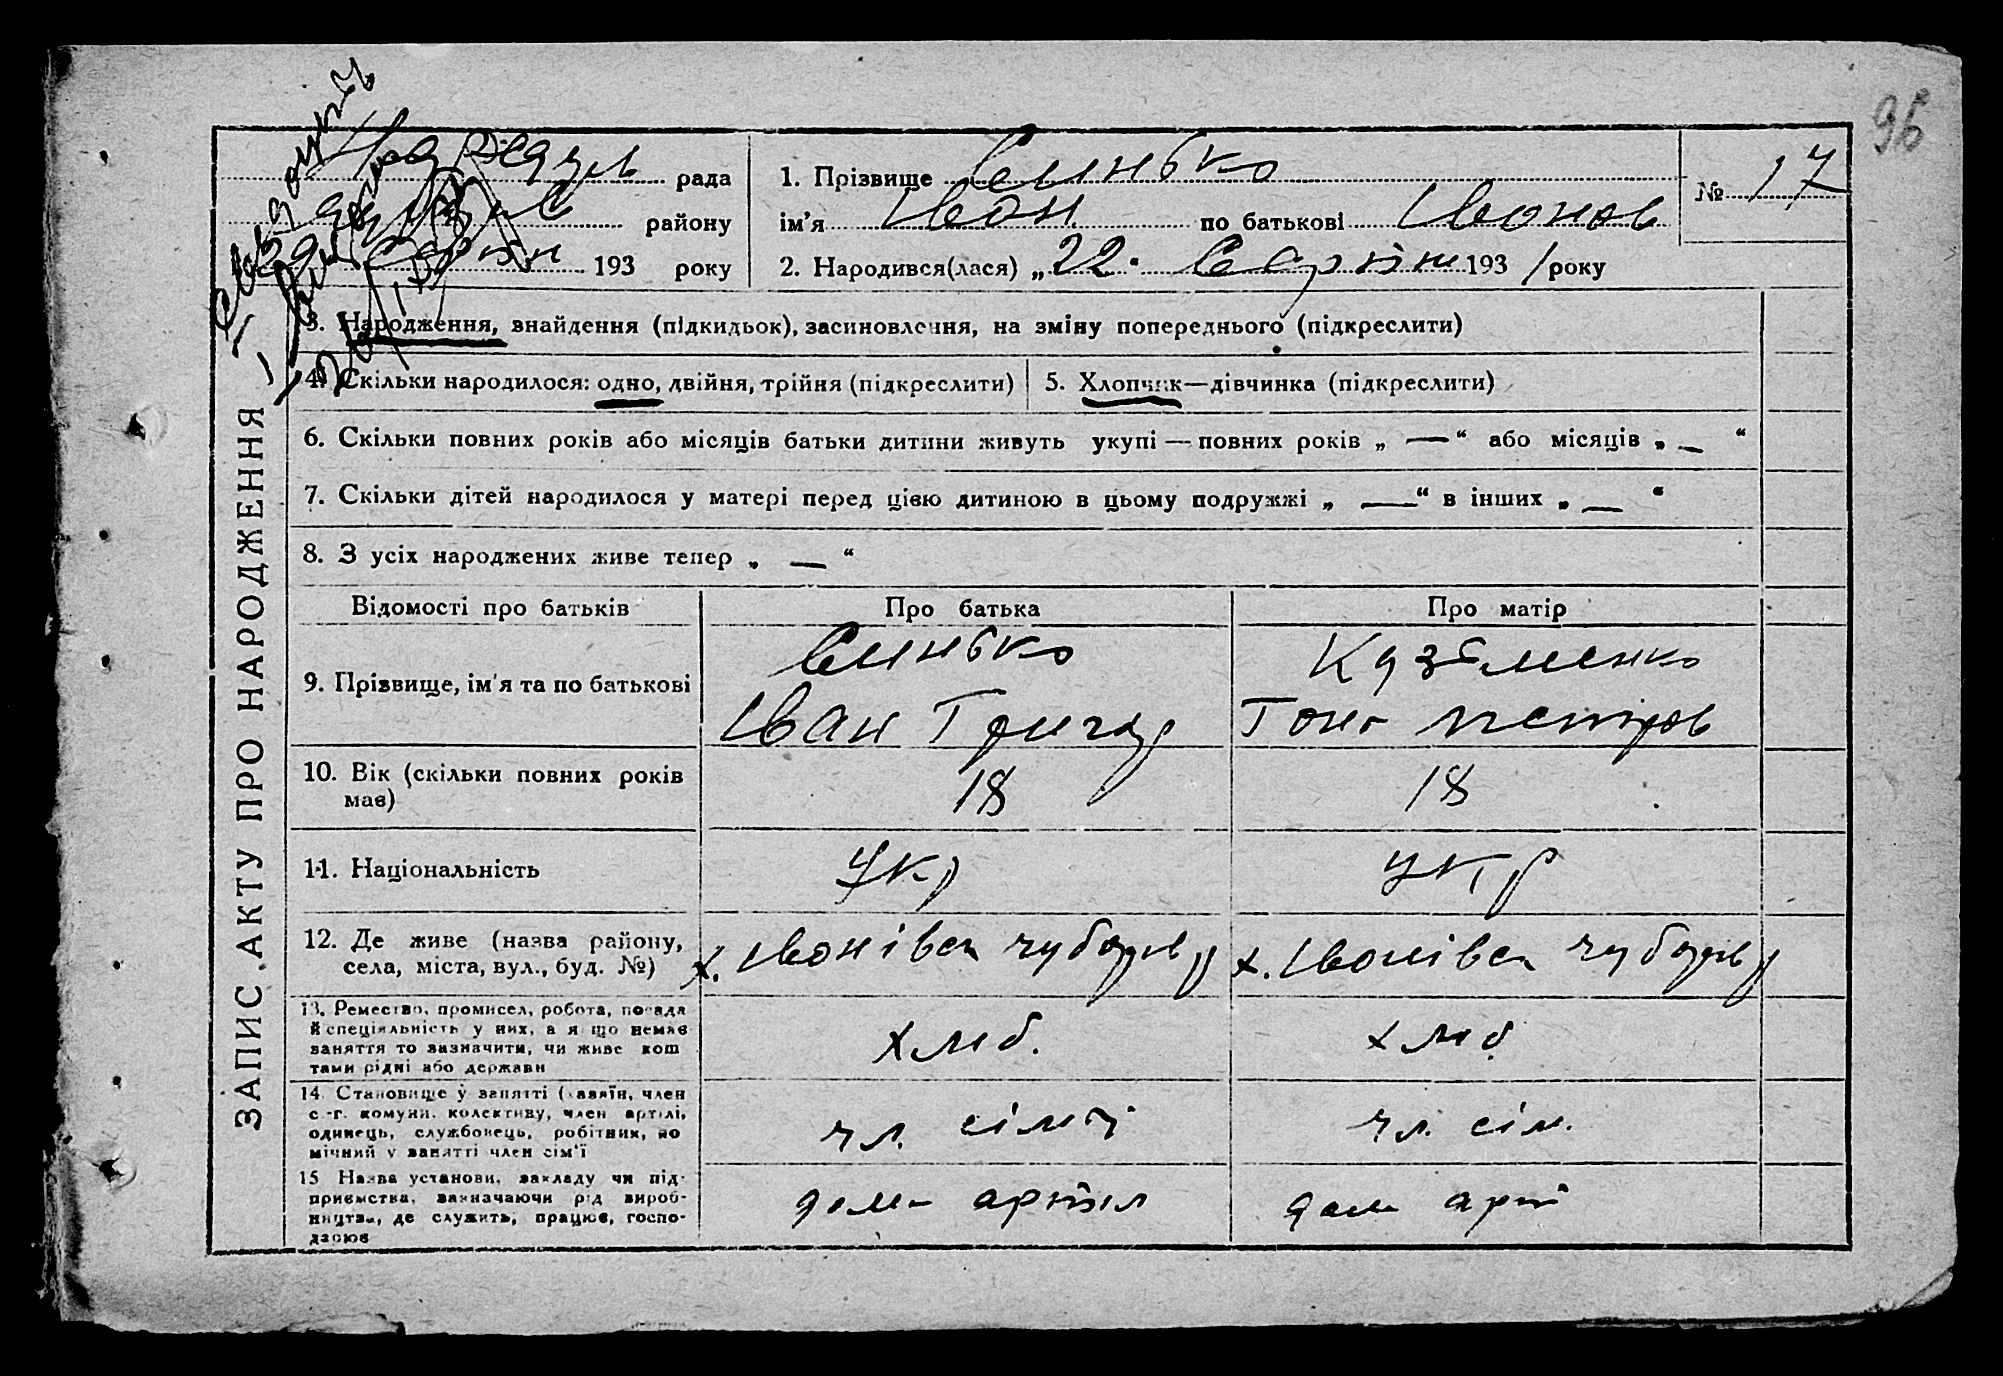 96
рада
району
193 року
1. Прізвище Синько
ім'я Іван по батькові Іванов
2. Народився(лася) „22" Серпня 1931 року
№ 17
ЗАПИС АКТУ ПРО НАРОДЖЕННЯ
3. Народження, знайдення (підкидьок), засиновлення, на зміну попереднього (підкреслити)
4. Скільки народилося: одно, двійня, трійня (підкреслити)
5. Хлопчик—дівчинка (підкреслити)
6. Скільки повних років або місяців батьки дитини живуть укупі — повних років „ — “ або місяців „ — “
7. Скільки дітей народилося у матері перед цією дитиною в цьому подружжі „ — “ в інших „ — “
8. З усіх народжених живе тепер „ — “
Відомості про батьків
Про батька
Про матір
9. Прізвище, ім'я та по батькові
Синько
Іван Григор
Кузьменко
Тонь петров
10. Вік (скільки повних років
має)
18
18
11. Національність
Укр
Укр
12. Де живе (назва району,
села, міста, вул., буд. №)
х. Іванівси чубарів р
х. Іванівси чубарів р
13. Ремество, промисел, робота, посада
й спеціяльність у них, а я що немає
заняття то зазначити, чи живе кош
тами рідні або держави
хліб.
хліб
14. Становище у занятті (хазяїн, член
с.-г. комуни, колективу, член артілі,
одинець, службовець, робітник, по
мічний у занятті член сім'ї
чл. сімї
чл. сім.
15 Назва установи, закладу чи під-
приємства, зазначаючи рід вироб-
ництва, де служить, працює, госпо-
дарює
артіл
арт